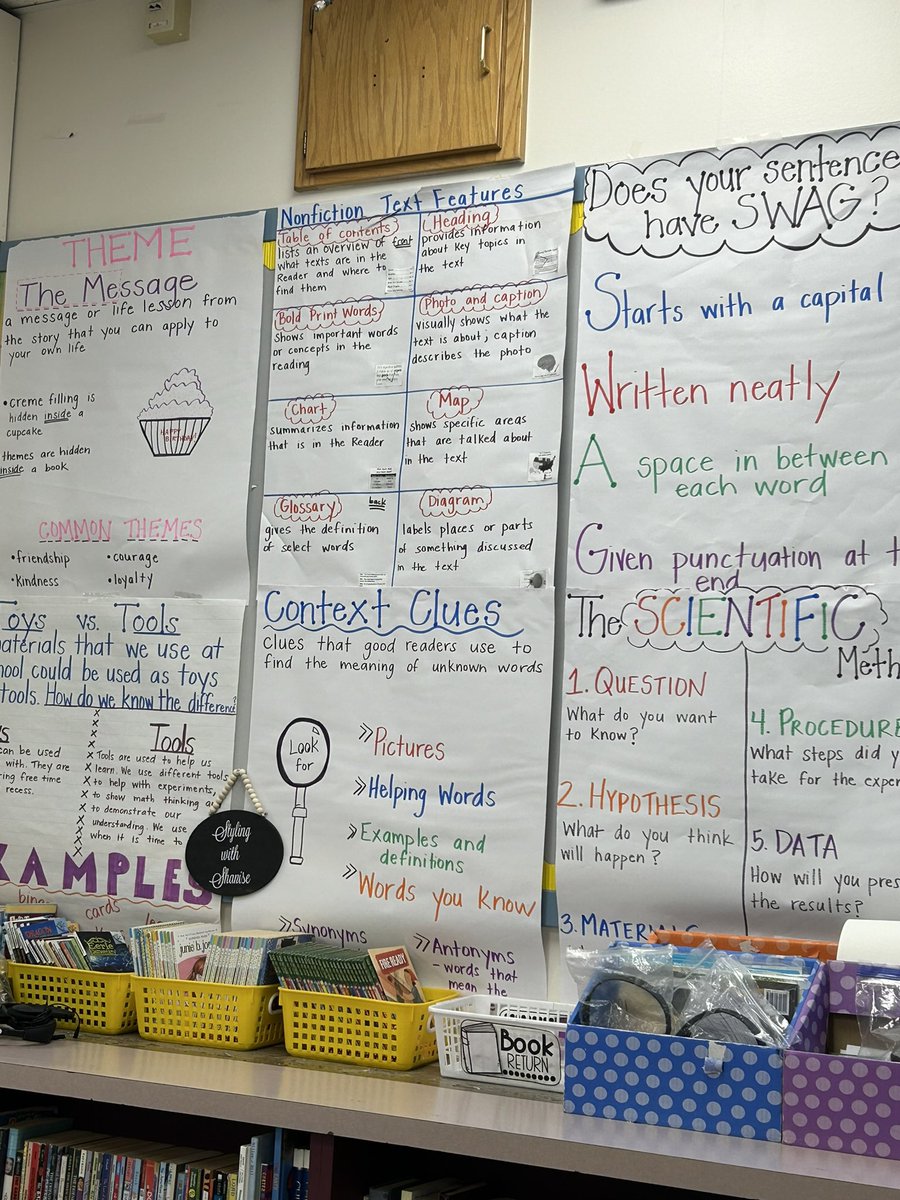 THEME
The Message
a message or life lesson from
the story that you can apply to
your own life
•creme filling is
hidden inside a
cupcake
themes are hidden
inside a book
HAPPY
BIRTHDAY
COMMON THEMES
•friendship •courage
•Kindness •loyalty
Nonfiction Text Features
Table of contents
lists an overview of front
what texts are in the
Reader and where to
find them
Heading
provides information
about key topics in
the text
Bold Print Words
Shows important words
or concepts in the
reading
Photo and caption
visually shows what the
text is about; caption
describes the photo
Chart
summarizes information
that is in the Reader
Map
shows specific areas
that are talked about
in the text
Glossary back
gives the definition
of select words
Diagram
labels places or parts
of something discussed
in the text
Does your sentence
have SWAG?
Starts with a capital
Written neatly
A space in between
each word
Given punctuation at
end
Toys vs. Tools
materials that we use at
could be used as toys
tools. How do we know the difference?
can be used
with. They are
free time
recess.
Tools
Tools are used to help us
learn. We use different tools
to help with experiments,
to show math thinking
to demonstrate our
understanding. We use
when it is time to
EXAMPLES
cards
Styling
with
Shanise
Context Clues
Clues that good readers use to
find the meaning of unknown words
Look
for
»Pictures
»Helping Words
»Examples and
definitions
»Words you know
»Synonyms
»Antonyms
- words that
mean the
The SCIENTIFIC
1. QUESTION
What do you want
to know?
2. HYPOTHESIS
What do you think
will happen?
3. MATERIALS
4. PROCEDURE
What steps did
take for the
5. DATA
How will you
the results?
junie b. jones
FIRE READY
Book
RETURN